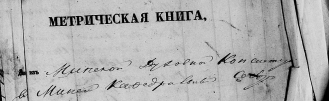 МЕТРИЧЕСКАЯ КНИГА,
Минской Духовной Консист
въ Минск Кафедральный